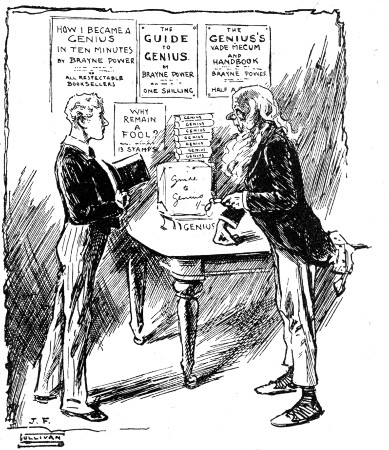 HOW I BECAME A
GENIUS
IN TEN MINUTES
BY BRAYNE POWER
ALL RESPECTABLE
BOOKSELLERS
THE
GUIDE
TO
GENIUS.
BY
BRAYNE POWER
ONE SHILLING
THE
GENIUS'S
VADE MECUM
AND
HANDBOOK
BRAYNE POWER
HALF A
WHY
REMAIN
A
FOOL?
13 STAMPS
GENIUS
GENIUS
GENIUS
GENIUS
GENIUS
GENIUS
Guide
to
Genius
1/-
GENIUS
J. F.
SULLIVAN